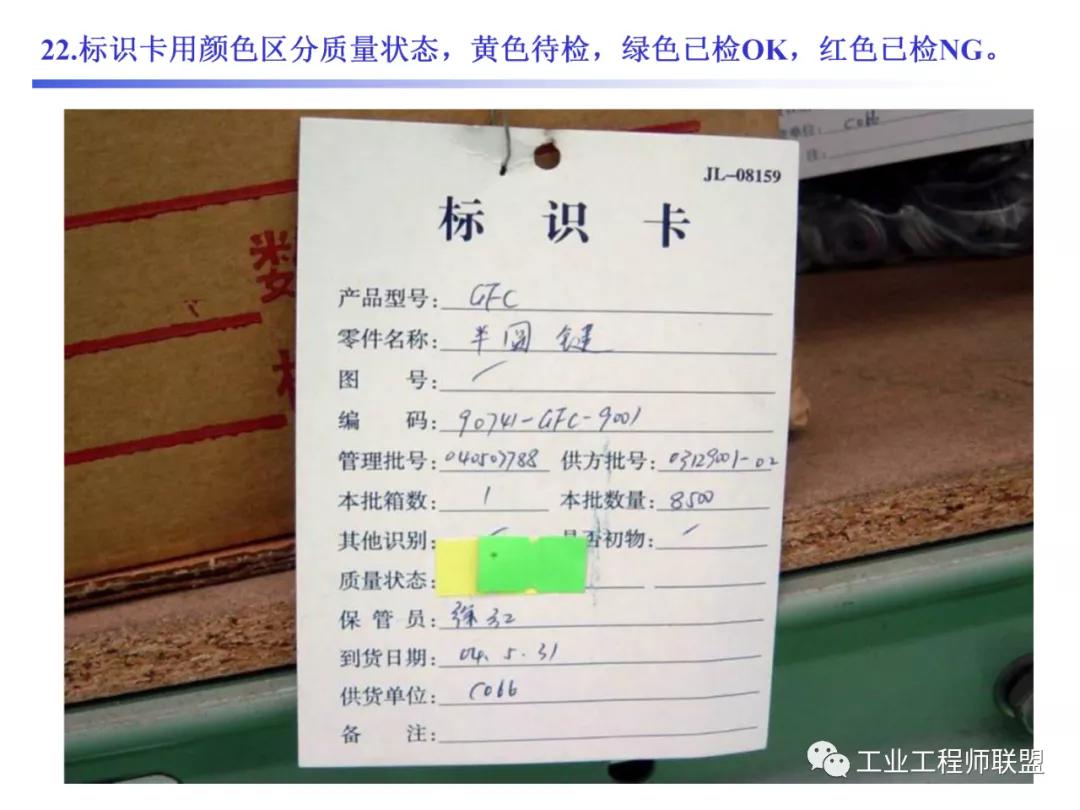 22.标识卡用颜色区分质量状态，黄色待检，绿色已检OK，红色已检NG。
单位: C066
注:
数
JL-08159
标 识 卡
产品型号: GFC
零件名称: 半圆键
图 号: /
编 码: 90741-GFC-9001
管理批号: 040507788 供方批号: 03129001-02
本批箱数: 1 本批数量: 8500
其他识别: / 是否初物: /
质量状态:
保 管 员: 张红
到货日期: 04.5.31
供货单位: C066
备 注:
工业工程师联盟